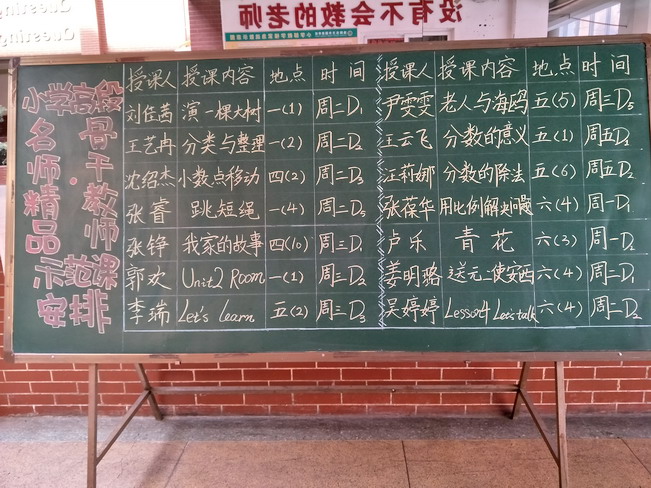 没有不会教的老师
小学高段
名师·骨干
精品 教师
示范课
安排
授课人 授课内容 地点 时间 授课人 授课内容 地点 时间
刘佳茜 演一棵大树 一(1) 周二D1 尹雯雯 老人与海鸥 五(5) 周三D5
王艺冉 分类与整理 一(2) 周二D2 王云飞 分数的意义 五(1) 周五D2
沈绍杰 小数点移动 四(2) 周二D3 江莉娜 分数的除法 五(6) 周五D2
张睿 跳短绳 一(4) 周二D5 张葆华 用比例解决问题 六(4) 周一D1
张铮 我家的故事 四(10) 周三D1 卢乐 青花 六(3) 周一D2
郭欢 Unit2 Room 一(1) 周三D2 姜明璐 送元二使安西 六(4) 周二D1
李瑞 Let's Learn 五(2) 周三D3 吴婷婷 Lesson4 Let's talk 六(4) 周二D2